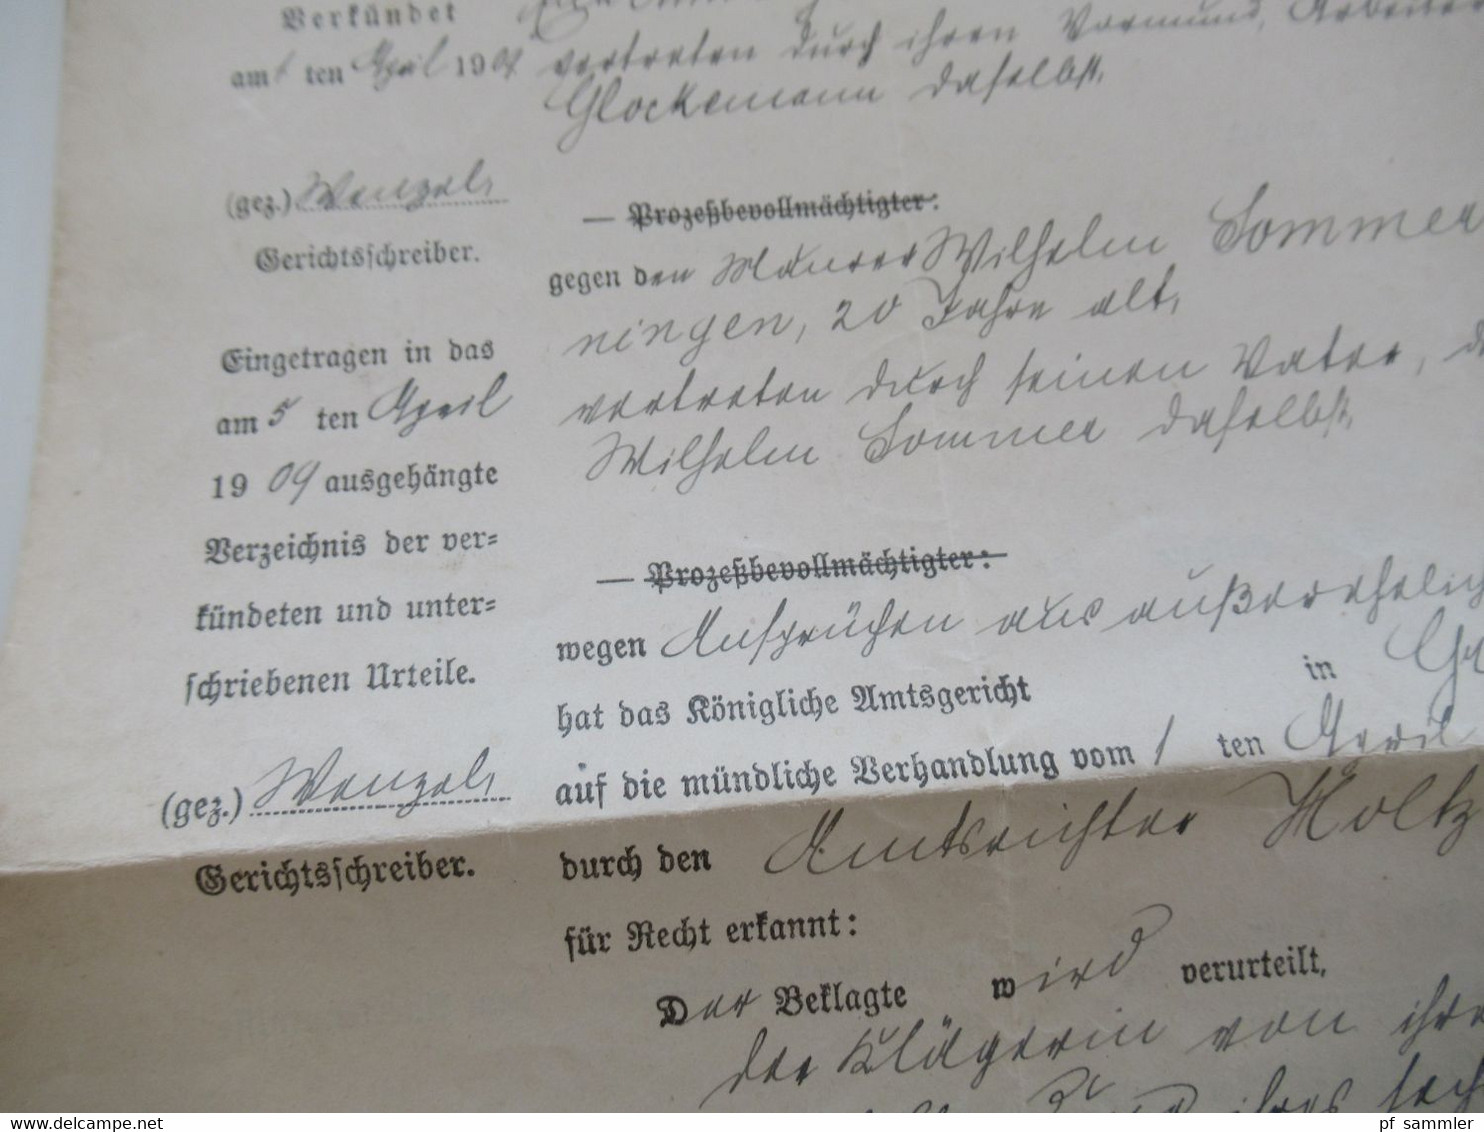 Verkündet
am 1 ten April 1909
(gez.) Wenzel,
Gerichtsschreiber.
Eingetragen in das
am 5 ten April
1909 ausgehängte
Verzeichnis der ver=
kündeten und unter=
schriebenen Urteile.
(gez.) Wenzel,
Gerichtsschreiber.
vertreten durch ihren Vormund, Arbeiter
Glockemann daselbst,
— Prozeßbevollmächtigter:
gegen den Maurer Wilhelm Sommer
ningen, 20 Jahre alt,
vertreten durch seinen Vater, d
Wilhelm Sommer daselbst,
— Prozeßbevollmächtigter:
wegen Ansprüchen aus außerehelich
hat das Königliche Amtsgericht in
auf die mündliche Verhandlung vom 1 ten April
durch den Amtsrichter Holtz
für Recht erkannt:
Der Beklagte wird verurteilt,
der Klägerin von ihre
ihres sech
pf sammler
www.delcampe.net